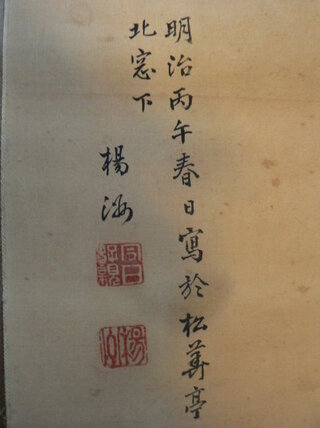 明治丙午春日寫於松亭
北窓下
楊海